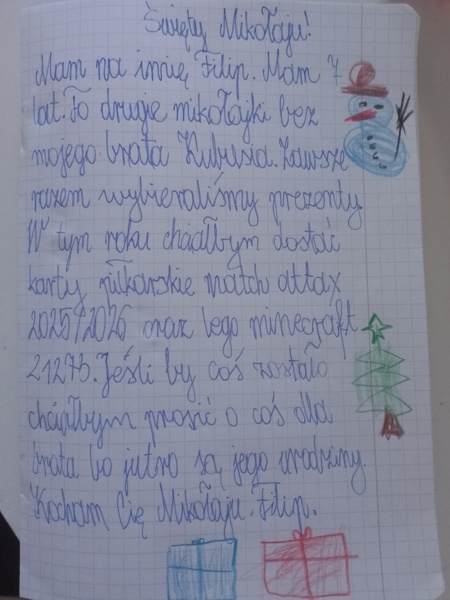 Święty Mikołaju!
Mam na imię Filip. Mam 7
lat. To drugie mikołajki bez
mojego brata Kubusia. Zawsze
razem wybieraliśmy prezenty
W tym roku chciałbym dostać
karty piłkarskie match attax
2025/2026 oraz lego minecraft
21273. Jeśli by coś zostało
chciałbym prosić o coś dla
brata bo jutro są jego urodziny.
Kocham Cię Mikołaju. Filip.